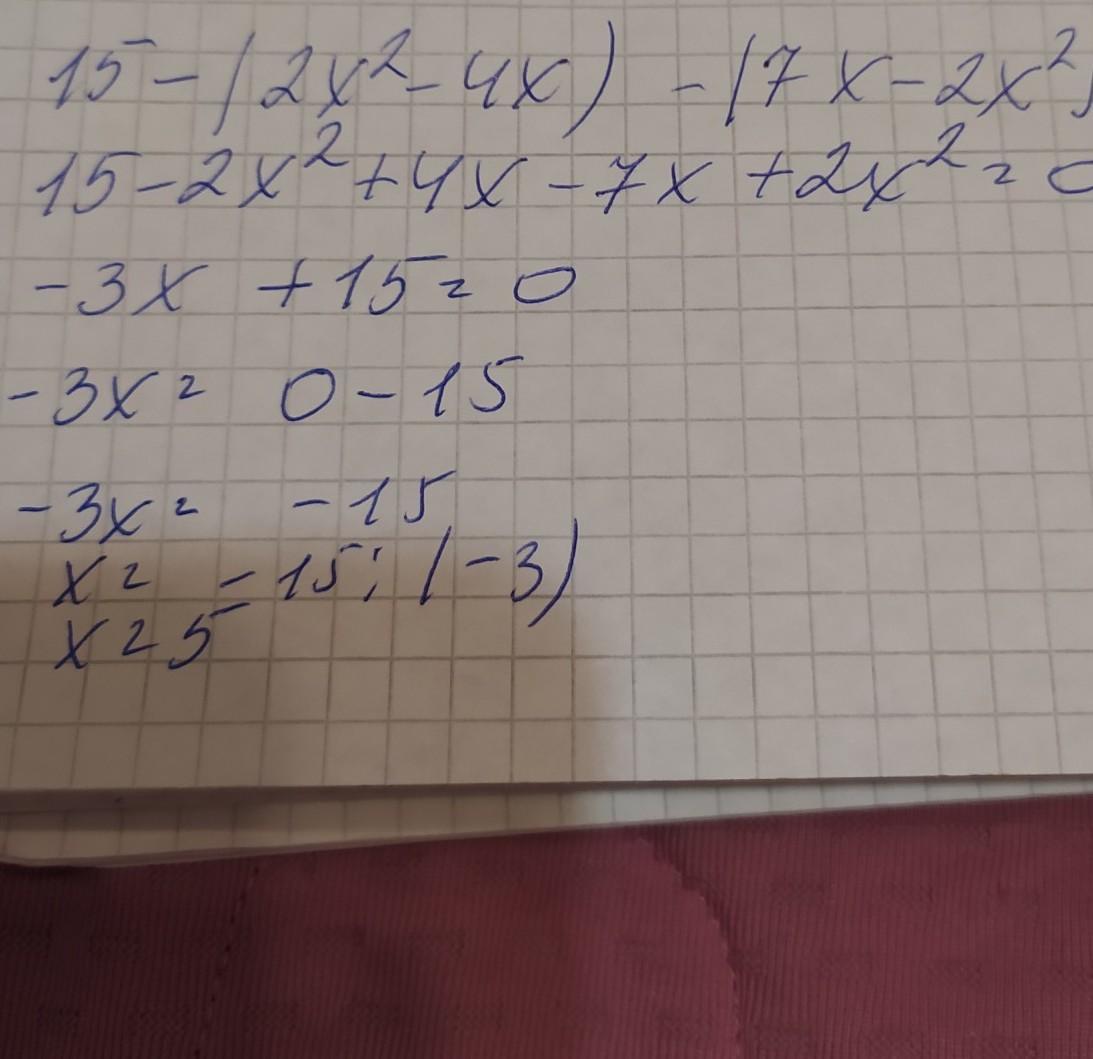 15 - (2x² - 4x) - (7x - 2x²)
15 - 2x² + 4x - 7x + 2x² = 0
-3x + 15 = 0
-3x = 0 - 15
-3x = -15
x = -15 : (-3)
x = 5